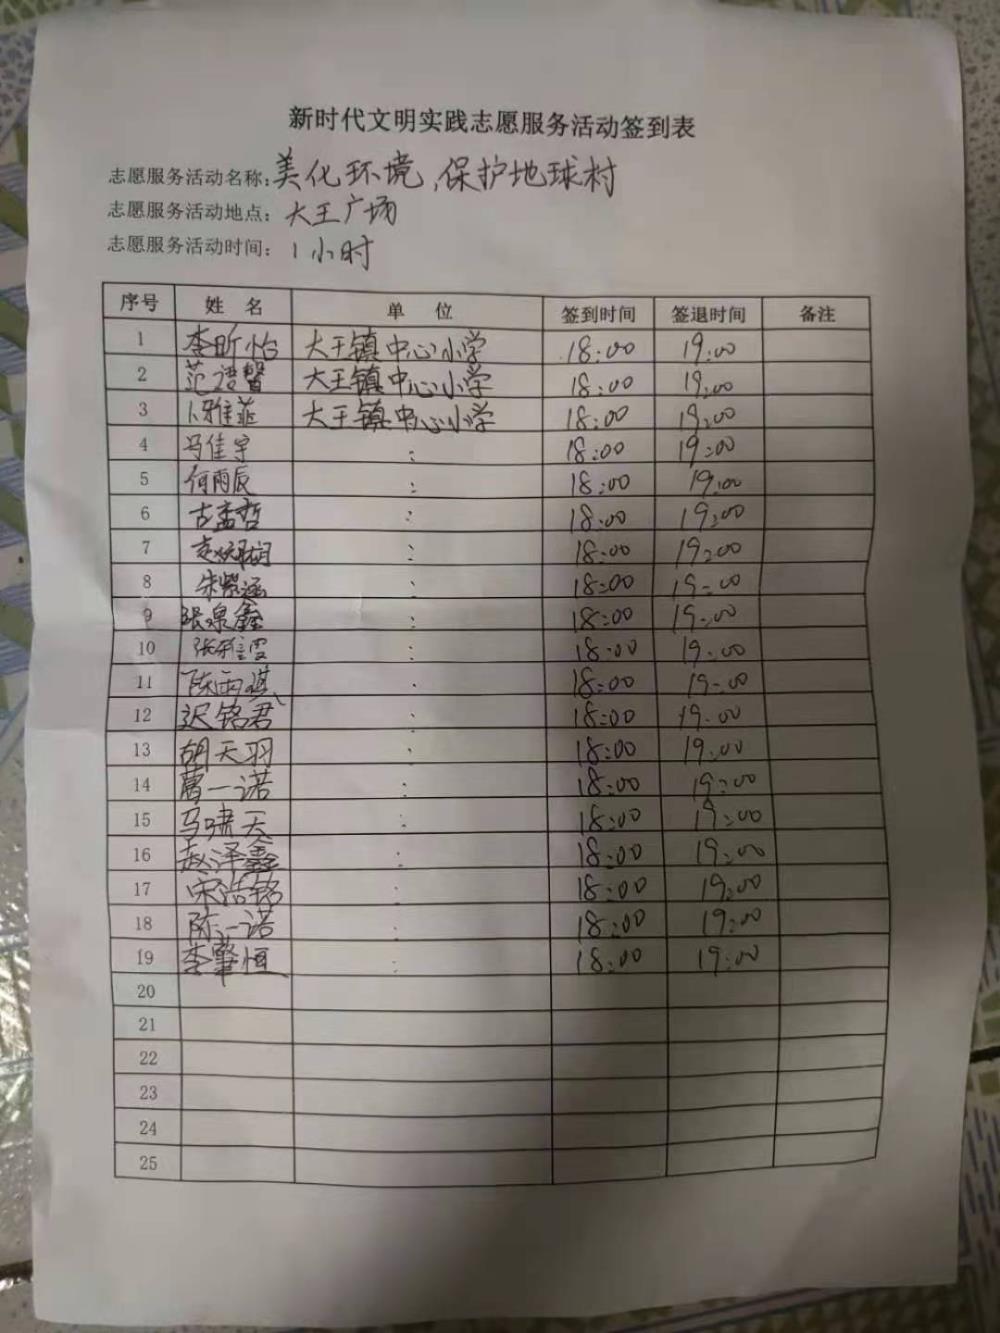 新时代文明实践志愿服务活动签到表
志愿服务活动名称:美化环境,保护地球村
志愿服务活动地点: 大王广场
志愿服务活动时间: 1小时
序号 姓名 单位 签到时间 签退时间 备注
1 李昕怡 大王镇中心小学 18:00 19:00
2 范 大王镇中心小学 18:00 19:00
3 大王镇中心小学 18:00 19:00
4 冯佳宇 : 18:00 19:00
5 何雨辰 : 18:00 19:00
6 古孟哲 : 18:00 19:00
7 : 18:00 19:00
8 朱紫涵 : 18:00 19:00
9 张泉鑫 : 18:00 19:00
10 张雅雯 : 18:00 19:00
11 陈雨琪 : 18:00 19:00
12 迟铭君 : 18:00 19:00
13 胡天羽 : 18:00 19:00
14 葛一诺 : 18:00 19:00
15 马啸天 : 18:00 19:00
16 赵泽鑫 : 18:00 19:00
17 宋浩铭 : 18:00 19:00
18 陈一诺 : 18:00 19:00
19 李肇恒 : 18:00 19:00
20
21
22
23
24
25